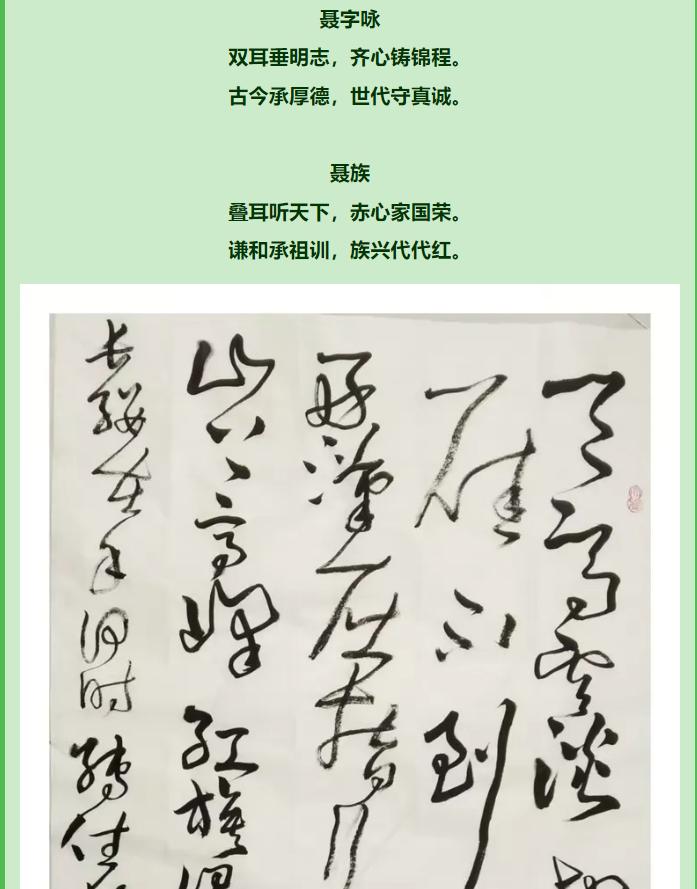 聂字咏
双耳垂明志，齐心铸锦程。
古今承厚德，世代守真诚。
聂族
叠耳听天下，赤心家国荣。
谦和承祖训，族兴代代红。
天高云淡
雁不到
好汉屈指
山上高峰红旗
长缨在手何时缚住